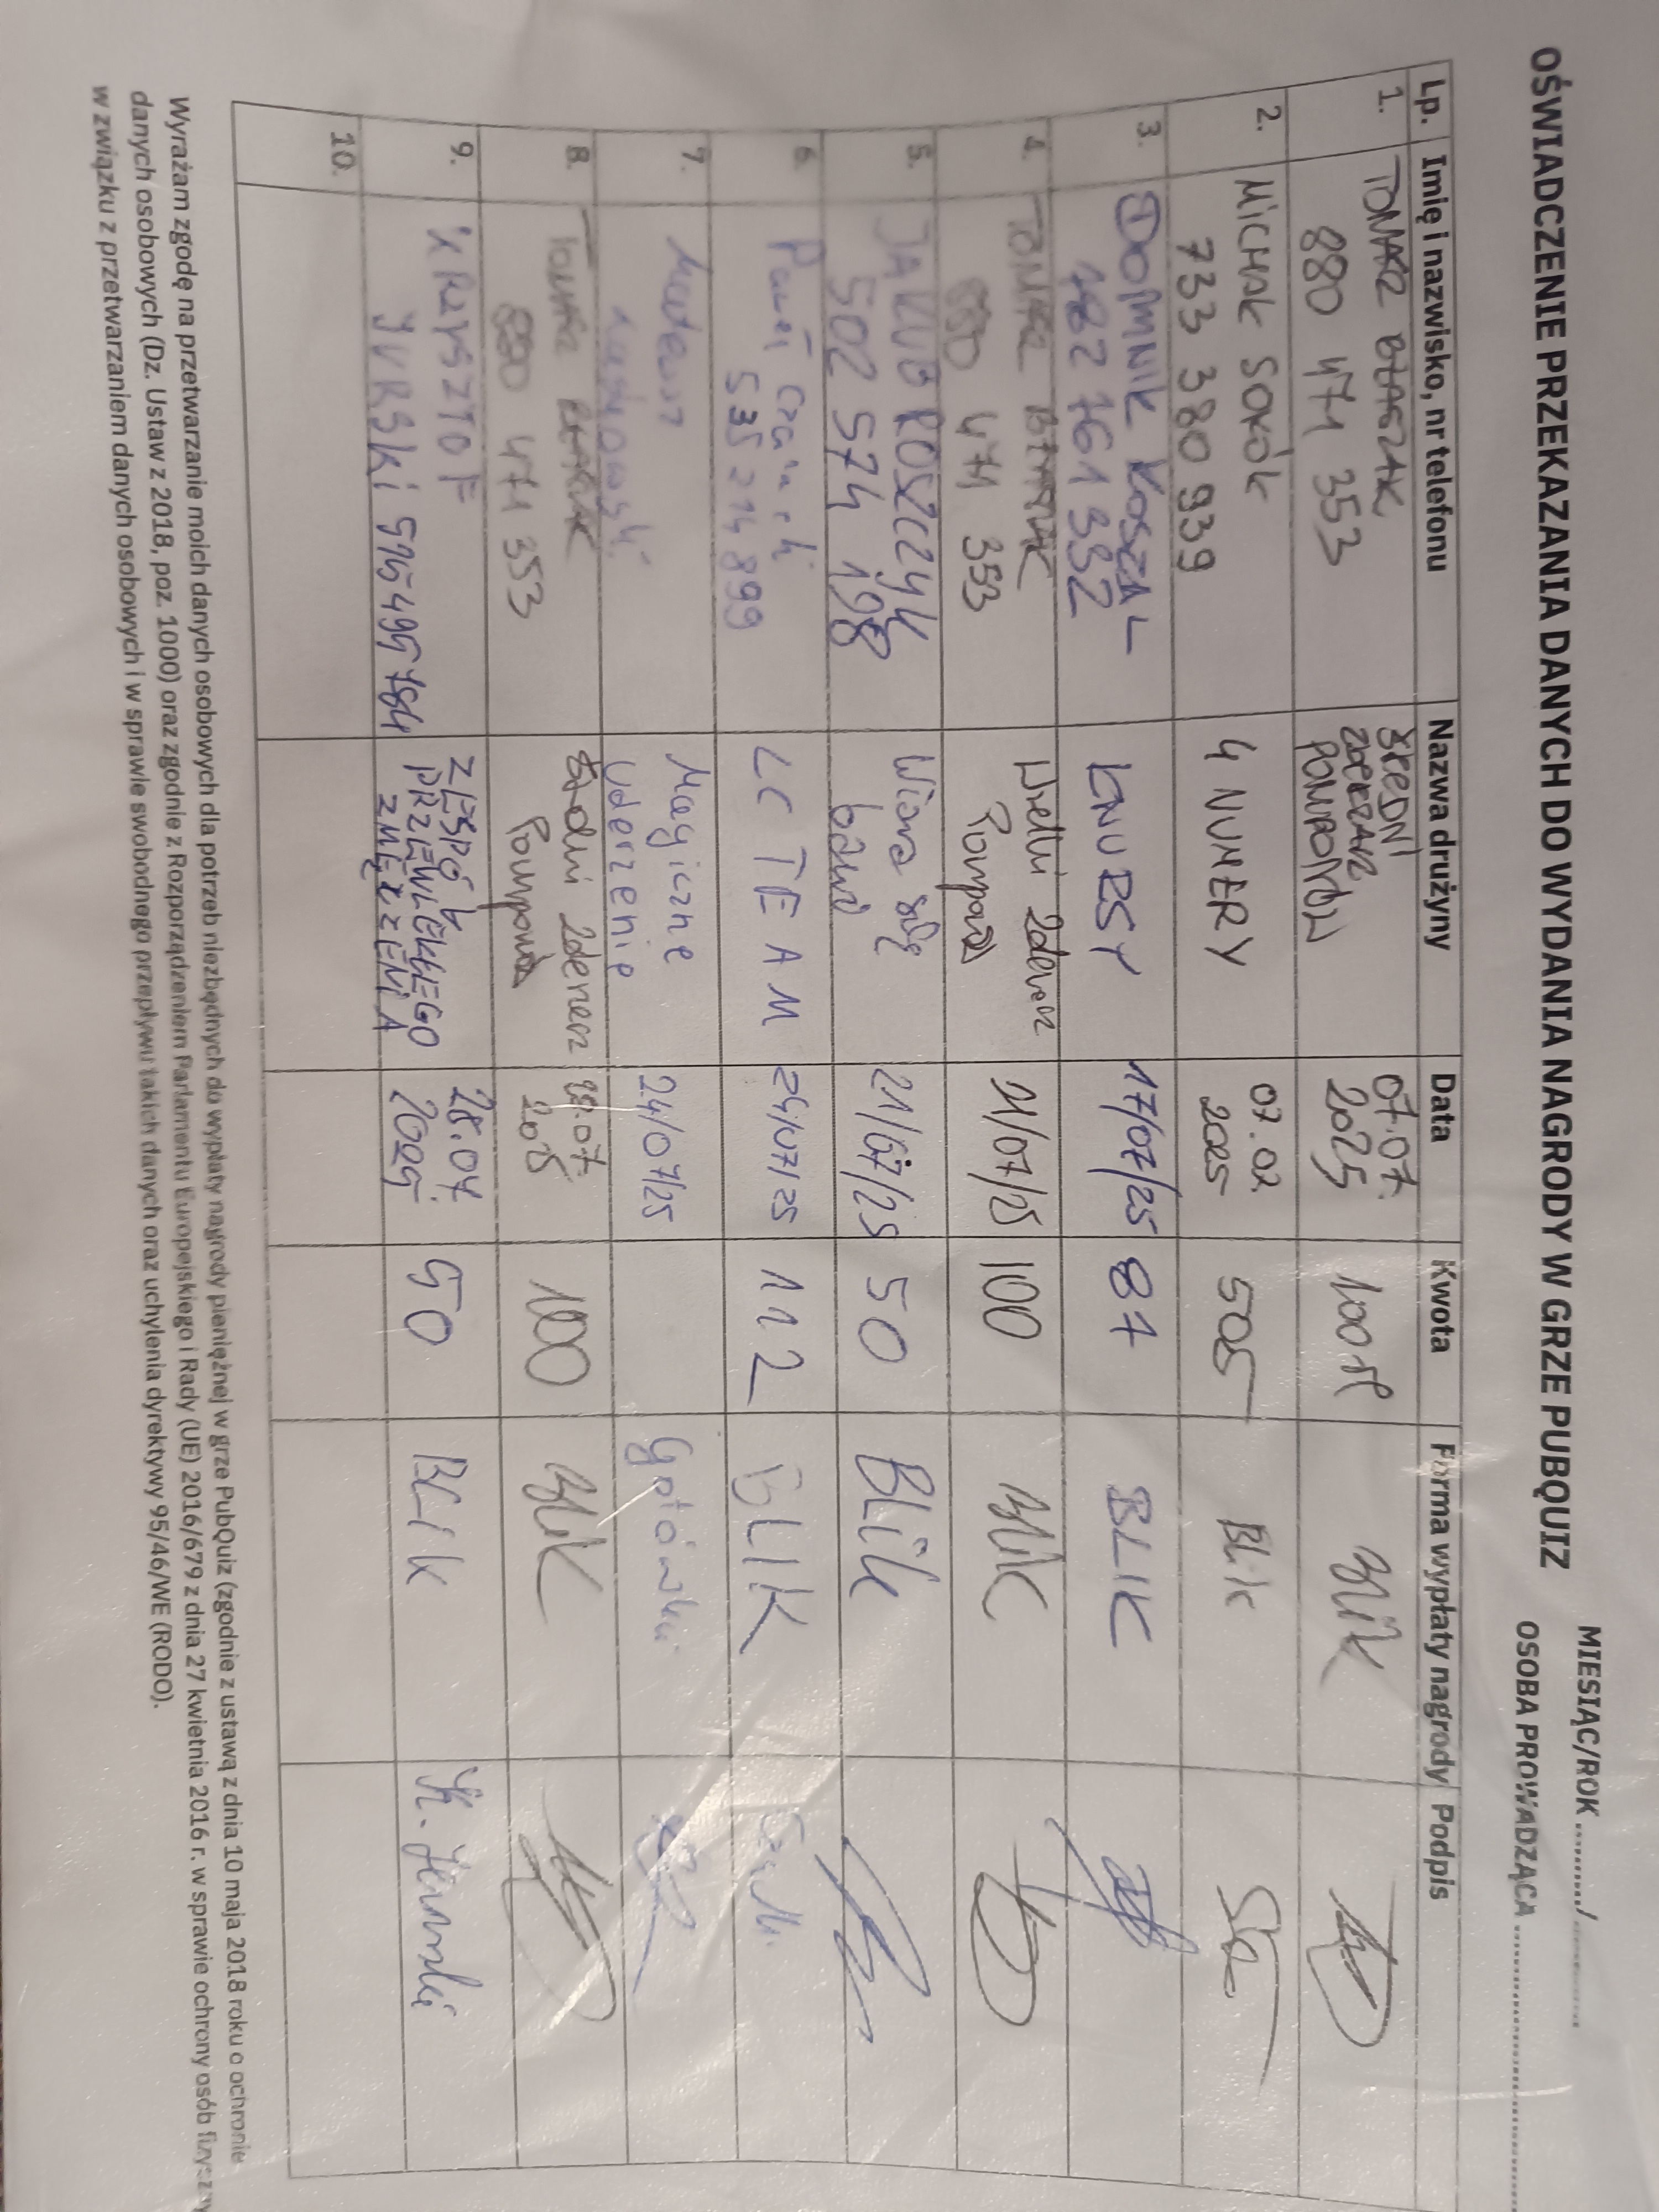 OŚWIADCZENIE PRZEKAZANIA DANYCH DO WYDANIA NAGRODY W GRZE PUBQUIZ
MIESIĄC/ROK ........../..........
OSOBA PROWADZĄCA ....................
Lp. Imię i nazwisko, nr telefonu Nazwa drużyny Data Kwota Forma wypłaty nagrody Podpis
1. TOMASZ BŁASZAK
880 471 353
ŚREDNI
ZDERZACZ
POMPONÓW
07.07.
2025
100 zł
Blik
2. MICHAŁ SOKÓŁ
733 380 939
4 NUMERY
07.07
2025
50
Blik
3. DOMINIK KOSZAŁ
761 332
ŁNURSY
17/07/25
87
BLIK
4. TOMASZ BŁASZAK
880 471 353
Wielki Zderzacz
21/07/25
100
Blik
5. JAKUB ROSZCZYK
502 574 198
Wiara się
bawi
21/07/25
50
BLik
6. Paweł
535 214 899
LC TEAM
24/07/25
112
BLIK
7. Mateusz
Magiczne
Uderzenie
24/07/25
Gotówka
8. BŁASZAK
880 471 353
Zderzacz
2025
100
Blik
9. KRZYSZTOF
JURSKI 515 495 784
ZESPÓŁ
PRZEWLEKŁEGO
ZMĘCZENIA
28.07.
2025
50
BLIK
K. Jurski
10.
Wyrażam zgodę na przetwarzanie moich danych osobowych dla potrzeb niezbędnych do wypłaty nagrody pieniężnej w grze PubQuiz (zgodnie z ustawą z dnia 10 maja 2018 roku o ochronie
danych osobowych (Dz. Ustaw z 2018, poz. 1000) oraz zgodnie z Rozporządzeniem Parlamentu Europejskiego i Rady (UE) 2016/679 z dnia 27 kwietnia 2016 r. w sprawie ochrony osób
w związku z przetwarzaniem danych osobowych i w sprawie swobodnego przepływu takich danych oraz uchylenia dyrektywy 95/46/WE (RODO).